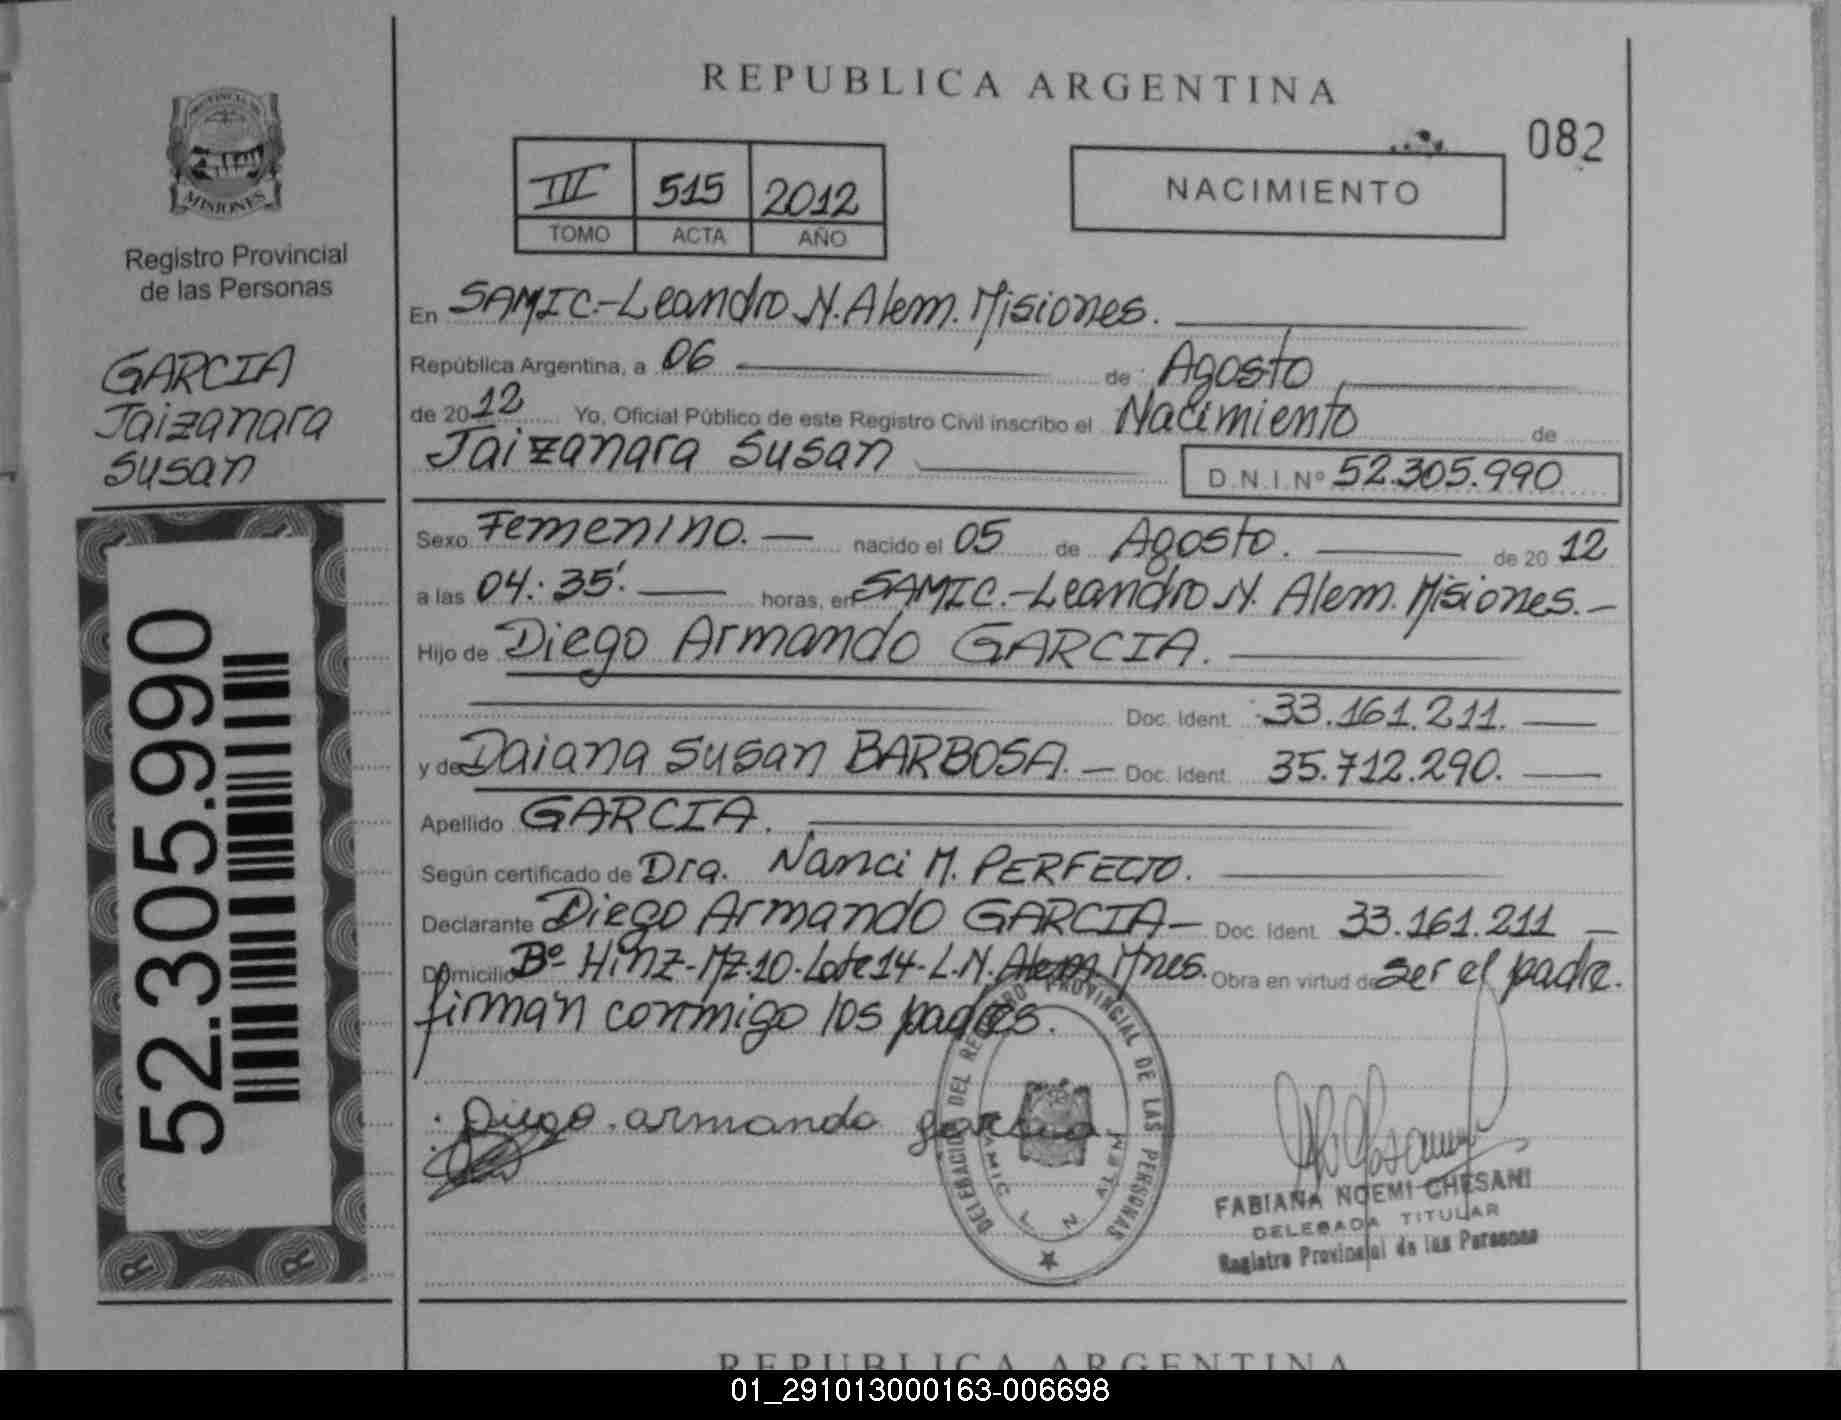 REPUBLICA ARGENTINA
082
PROVINCIA DE
MISIONES
Registro Provincial
de las Personas
GARCIA
Jaizanara
Susan
52.305.990
III 515 2012
TOMO ACTA AÑO
NACIMIENTO
En SAMIC.-Leandro N. Alem. Misiones.
República Argentina, a 06 de Agosto
de 2012 Yo, Oficial Público de este Registro Civil inscribo el Nacimiento de
Jaizanara Susan D.N.I.Nº 52.305.990
Sexo Femenino. nacido el 05 de Agosto. de 2012
a las 04:35'. horas, en SAMIC.-Leandro N. Alem. Misiones.-
Hijo de Diego Armando GARCIA.
Doc. Ident. 33.161.211.
y de Daiana Susan BARBOSA. Doc. Ident. 35.712.290.
Apellido GARCIA.
Según certificado de Dra. Nanci M. PERFECTO.
Declarante Diego Armando GARCIA- Doc. Ident. 33.161.211
Domicilio Bº Hinz-Mz.10-Lote 14-L.N.Alem Mnes. Obra en virtud de ser el padre.
firman conmigo los padres.
Diego armando garcia
DELEGACION DEL REGISTRO PROVINCIAL DE LAS PERSONAS
SAMIC L. N. ALEM
FABIANA NOEMI CHESANI
DELEGADA TITULAR
Registro Provincial de las Personas
REPUBLICA ARGENTINA
01_291013000163-006698